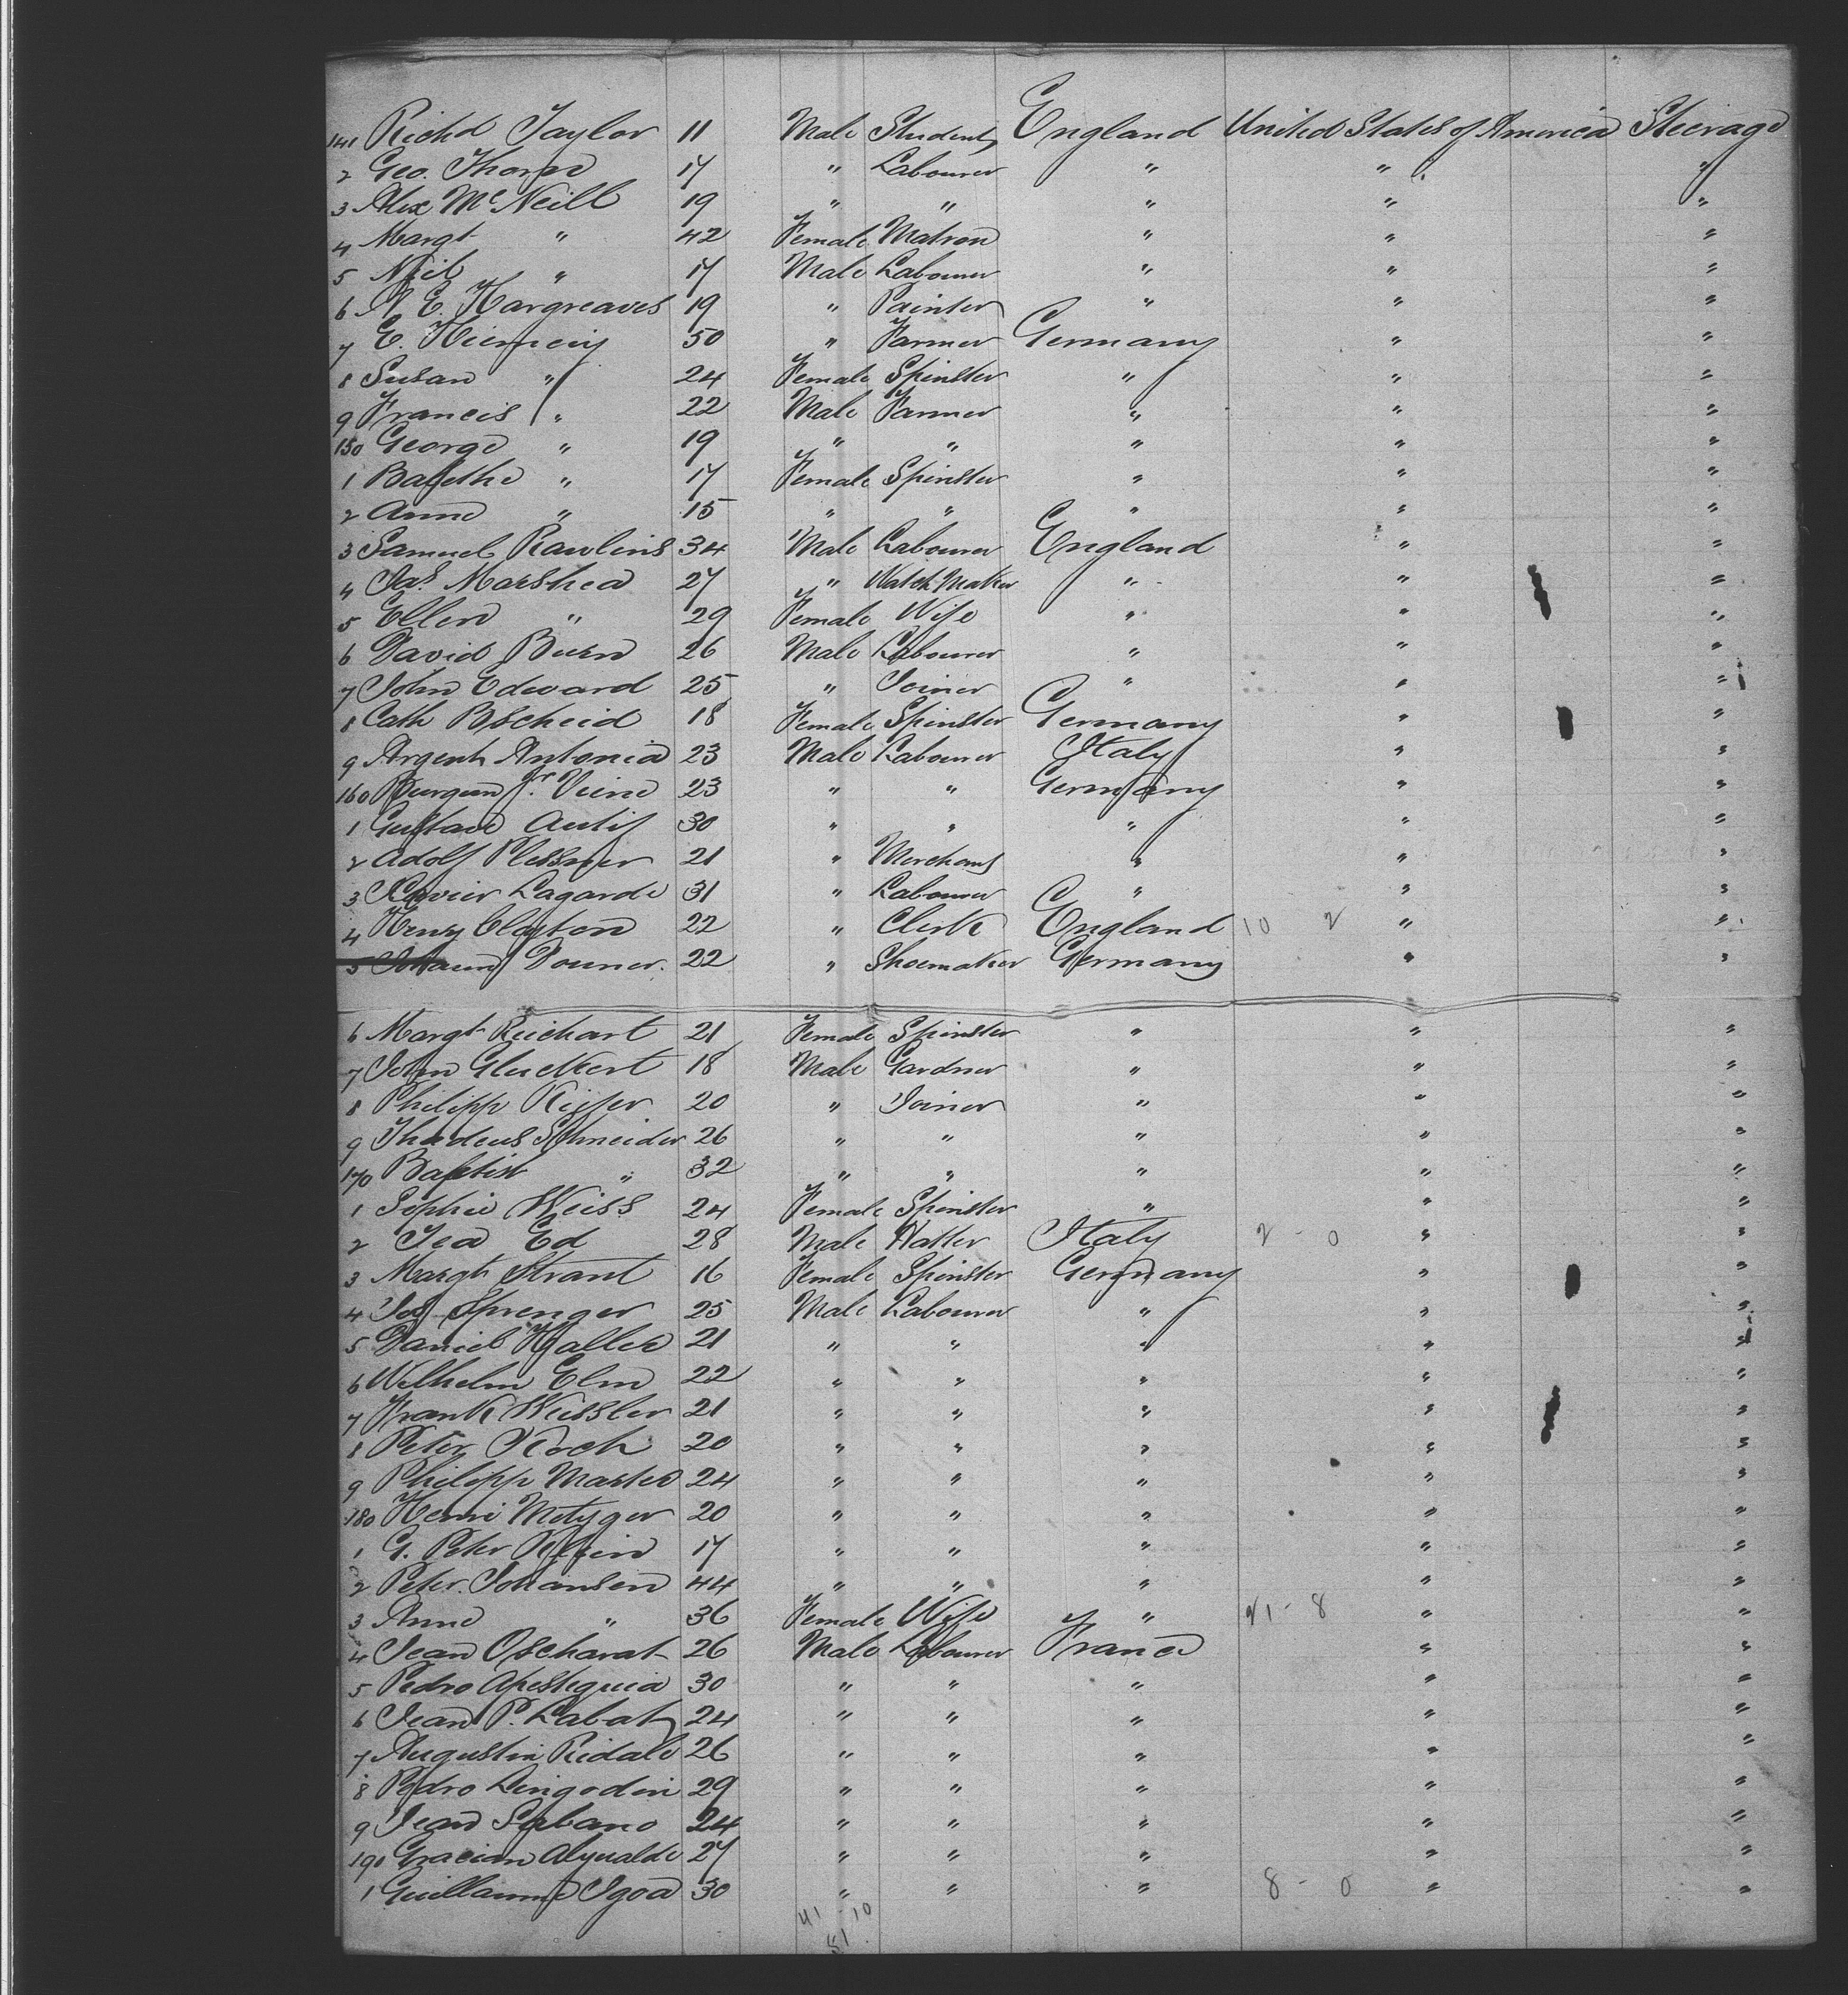 141 Richd Taylor 11 Male Student England United States of America Steerage
2 Geo. Thorn 17 " Labourer " " "
3 Alex McNeill 19 " " " " "
4 Margt " 42 Female Matron " " "
5 Neil " 17 Male Labourer " " "
6 A E. Hargreaves 19 " Painter " " "
7 E. 50 " Farmer Germany " "
8 Susan " 24 Female Spinster " " "
9 Francis " 22 Male Farmer " " "
150 George " 19 " " " " "
1 Babethe " 17 Female Spinster " " "
2 Anne " 15 " " " " "
3 Samuel Rawlins 34 Male Labourer England " "
4 Jas. Marshea 27 " Watch Maker " " "
5 Ellen " 29 Female Wife " " "
6 David Burn 26 Male Labourer " " "
7 John Edward 25 " Joiner " " "
8 Cath Bscheid 18 Female Spinster Germany " "
9 Argent Antonia 23 Male Labourer Italy " "
160 23 " " Germany " "
1 Gustave 30 " " " " "
2 Adolf Plessner 21 " Merchant " " "
3 Xavier Lagarde 31 " Labourer " " "
4 Henry Clayton 22 " Clerk England 10 2 " "
5 Johann Douner. 22 " Shoemaker Germany " "
6 Margt Reichart 21 Female Spinster " " "
7 John Gluckert 18 Male Gardner " " "
8 Philipp 20 " Joiner " " "
9 Thadeus Schneider 26 " " " " "
170 Baptist " 32 " " " " "
1 Sophie Weiss 24 Female Spinster " " "
2 Jea Ed 28 Male Hatter Italy 2 - 0 " "
3 Margt Strant 16 Female Spinster Germany " "
4 Jos Sprenger 25 Male Labourer " " "
5 Daniel Haller 21 " " " " "
6 Wilhelm Elm 22 " " " " "
7 Frank Weissler 21 " " " " "
8 Peter Koch 20 " " " " "
9 Philipp Master 24 " " " " "
180 Henri Metzger 20 " " " " "
1 G. Peter Klein 17 " " " " "
2 Peter Johansen 44 " " " " "
3 Anne " 36 Female Wife " 21 - 8 " "
4 Jean Oscharat 26 Male Labourer France " "
5 Pedro Apesteguia 30 " " " " "
6 Jean P. Labat 24 " " " " "
7 Augustin Ridale 26 " " " " "
8 Pedro Lingodin 29 " " " " "
9 Jean Sabano 24 " " " " "
190 Gracian Alzualde 27 " " " " "
1 Guillaume Igoa 30 " " " 8 - 0 " "
41 - 10
51